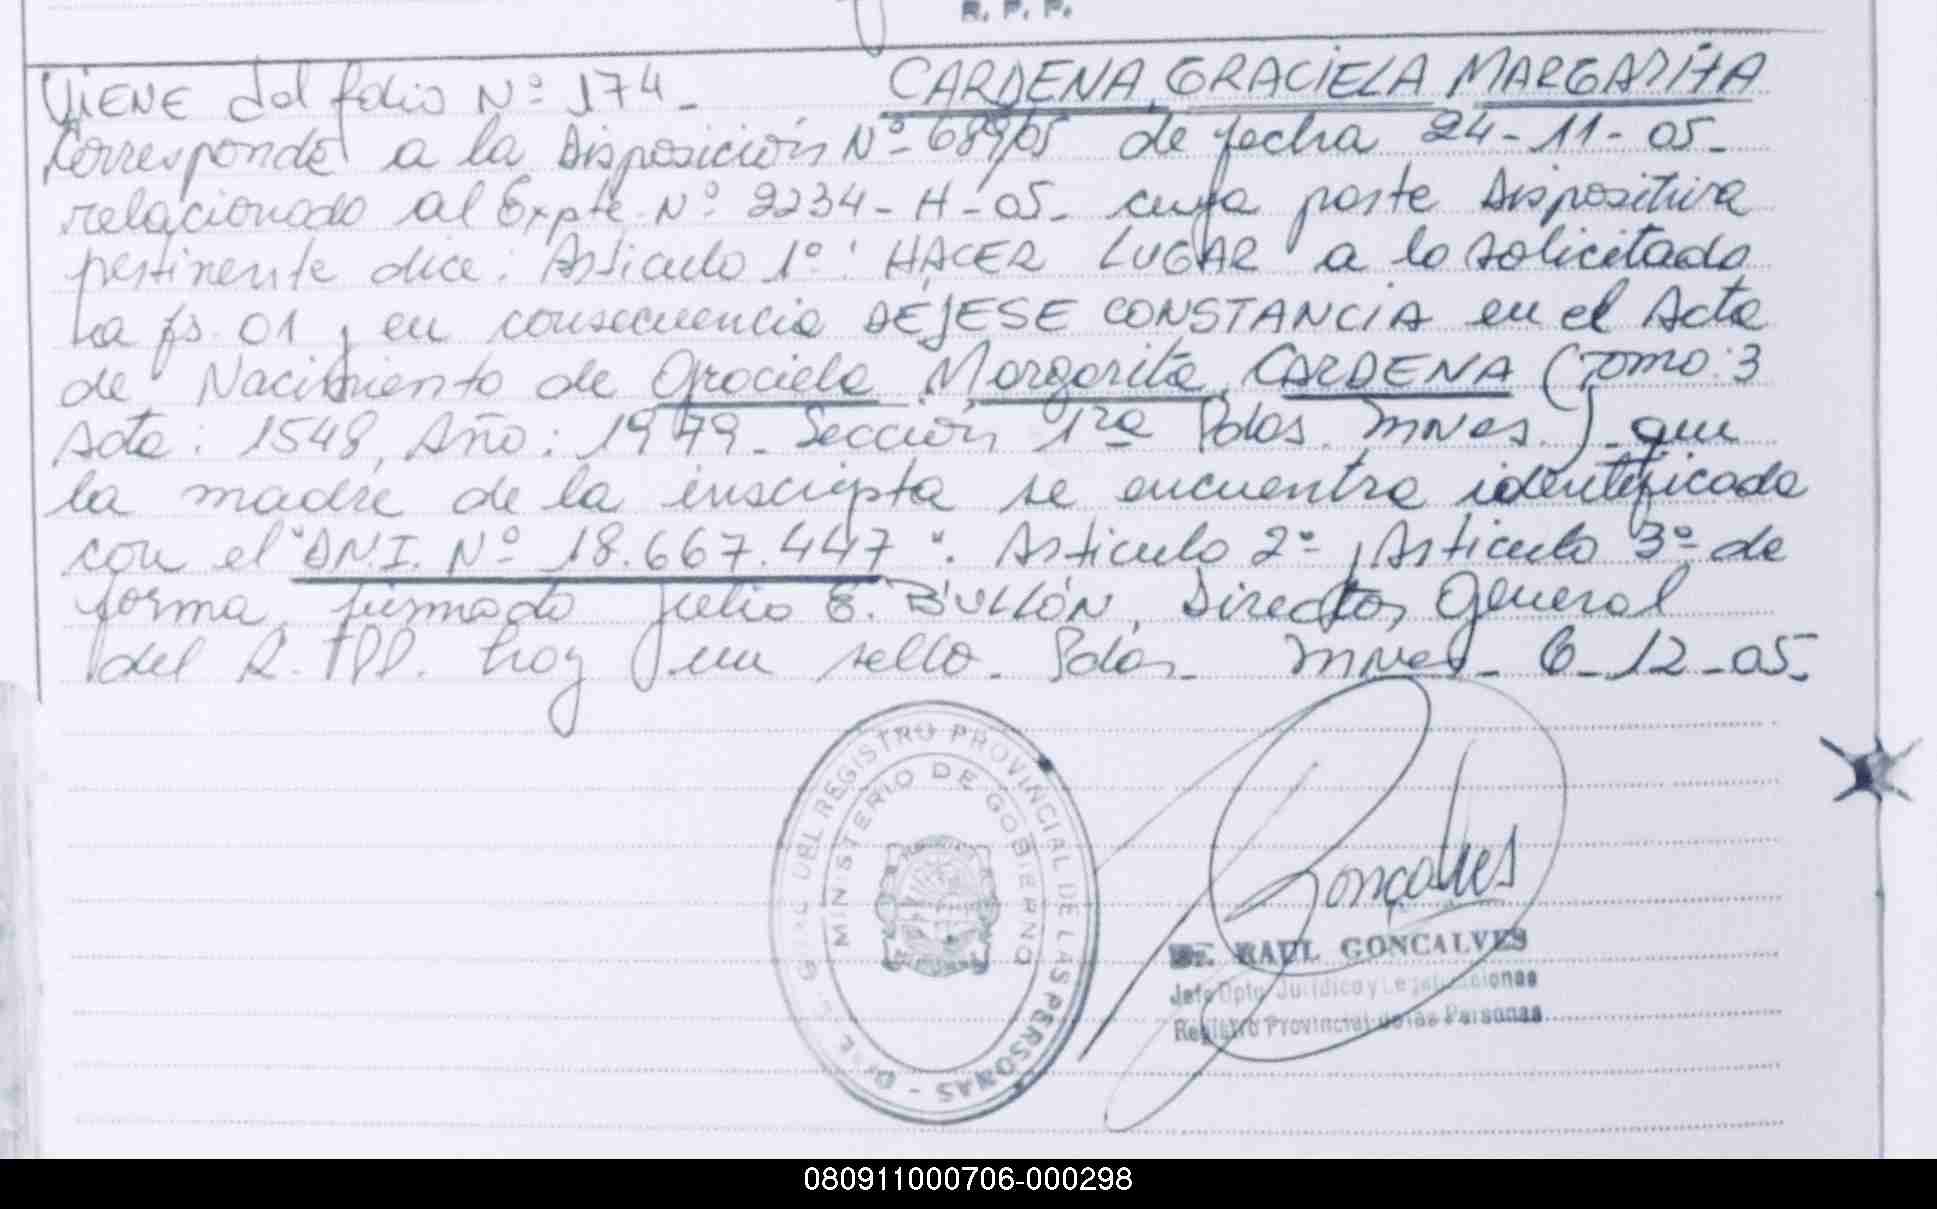 R. P. P.
VIENE del folio Nº 174_ CARDENA GRACIELA MARGARITA
Corresponde a la Disposición Nº 689/05 de fecha 24-11-05_
relacionado al Expte. Nº 2234-H-05_ cuya parte Dispositiva
pertinente dice: Articulo 1º: HACER LUGAR a lo solicitado
a fs. 01, en consecuencia DÉJESE CONSTANCIA en el Acta
de Nacimiento de Graciela Margarita CARDENA (Tomo: 3
Acta: 1548, Año: 1979_ Sección 1ra Pdas. Mnes.) que
la madre de la inscripta se encuentra identificada
con el "D.N.I. Nº 18.667.447". Articulo 2º, Articulo 3º de
forma firmado Julio E. BULLÓN, Director General
del R.PP. hay un sello_ Pdas_ Mnes_ 6_12_05_
DIREC. GRAL DEL REGISTRO PROVINCIAL DE LAS PERSONAS -
MINISTERIO DE GOBIERNO
Goncalves
Dr. RAUL GONCALVES
Jefe Dpto. Jurídico y Legalizaciones
Registro Provincial de las Personas
080911000706-000298